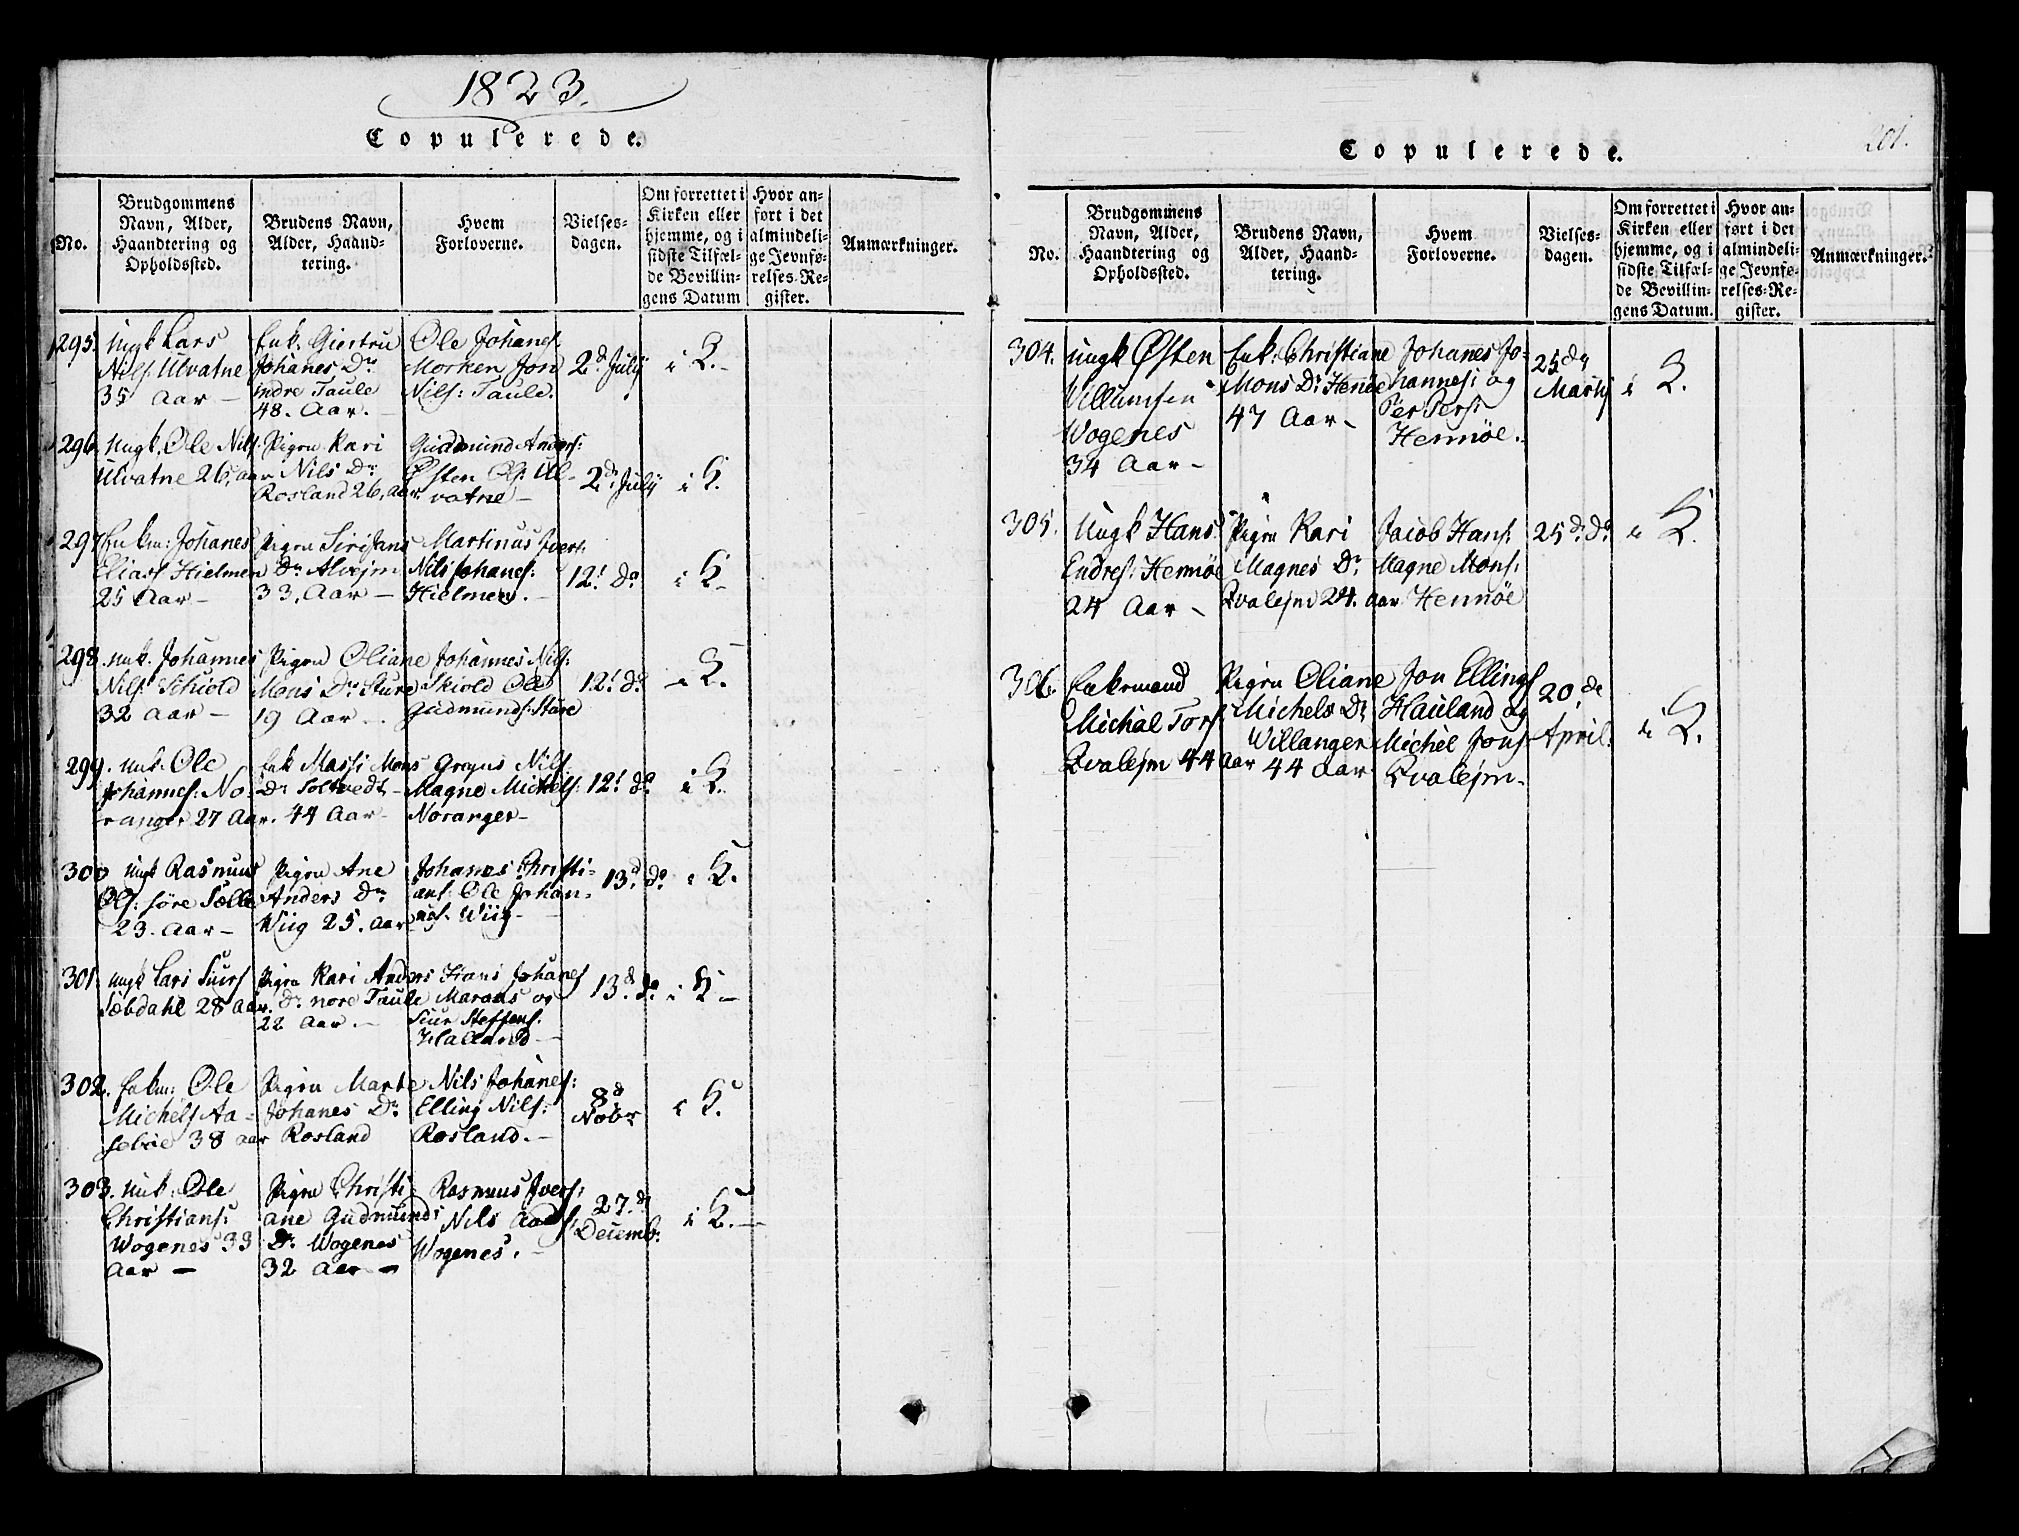 1823.
Copulerede.
No.
Brudgommens
Navn, Alder,
Haandtering og
Opholdssted.
Brudens Navn,
Alder, Haand-
tering.
Hvem
Forloverne.
Vielses-
dagen.
Om forrettet i
Kirken eller
hjemme, og i
sidste Tilfæl-
de Bevillin-
gens Datum
Hvor an-
ført i det
almindeli-
ge Jevnfø-
relses-Re-
gister.
Anmærkninger.
295. Ungk Lars
Nils: Ulvatne
35 Aar —
Enk. Giertru
Johanes Dr
indre Taule
48. Aar. —
Ole Johanes.
Morken Jon
Nils: Taule.
2d July
i K. —
296. Ungk. Ole Nils:
Ulvatne 26, aar
Pigen Kari
Nils Dr
Rosland 26, aar
Gudmund Anders:
Østen Ols: Ul-
vatne —
2d July
i K.
297 Enkm: Johanes
Elias: Hielmen
25 Aar —
Pigen Siri Hans
Dr Alvejm
33, Aar —
Martinus Iver:
Nils Johanes:
Hielmen. —
12t do
i K —
298. unk. Johannes
Nils: Schiold
32 aar —
Pigen Oliane
Mons Dr Sture
19 Aar —
Johannes Nils:
Skiold Ole
Gudmunds: Sture
12t do
i K.
299. unk. Ole
Johannes: No-
ranger 27 Aar.
Enk Massi Mons
Dr Toltvedt —
44 Aar —
Gregus Nils
Magne Michels:
Noranger —
12t do
i K.
300 ungk Rasmus
Ols: søre Sælle
23. Aar —
Pigen Ane
Anders Dr
Wiig 25. aar
Johanes Christi-
ans: Ole Johan-
nes. Wiig —
13d do
i K.
301. ungk Lars Siurs
Sæbdahl 28 aar.
Pigen Kari Anders
Dr nore Taule
22 Aar. —
Hans Johanes
Maraas og
Siur Steffens.
Halland —
13d do
i K —
302. Enkm: Ole
Michels Aa-
sebøe 38 aar
Pigen Marte
Johanes Dr
Rosland
Nils Johanes:
Elling Nils:
Rosland. —
8d
Nobr
i K.
303. unk: Ole
Christians:
Wogenes 33
Aar —
Pigen Christi-
ane Gudmunds
Dr Wogenes
32 Aar —
Rasmus Ivers:
Nils
Wogenes. —
27. d
Decemb:
i K. —
201.
Copulerede.
No.
Brudgommens
Navn, Alder,
Haandtering og
Opholdssted.
Brudens Navn,
Alder, Haand-
tering.
Hvem
Forloverne.
Vielses-
dagen.
Om forrettet i
Kirken eller
hjemme, og i
sidste Tilfæl-
de Bevillin-
gens Datum.
Hvor an-
ført i det
almindeli-
ge Jevnfø-
relses-Re-
gister.
Anmærkninger.
304. ungk Østen
Villumsen
Wogenes
34 Aar —
Enk: Christiane
Mons Dr Hennøe
47 Aar —
Johanes Jo-
hannes: og
Per Pers:
Hennøe.
25 de
Martij
i K.
305. Ungk Hans
Endres: Hennøe
24 Aar —
Pigen Kari
Magnes Dr
Qvalejm 24. aar
Jacob Hans:
Magne Mons:
Hennøe
25d do
i K.
306. Enkemand
Michal Tors:
Qvalejm 44 Aar
Pigen Oliane
Michels Dr
Willanger
44 aar
Jon Ellings
Hauland og
Michel Jons
Qvalejm —
20, de
April.
i K.